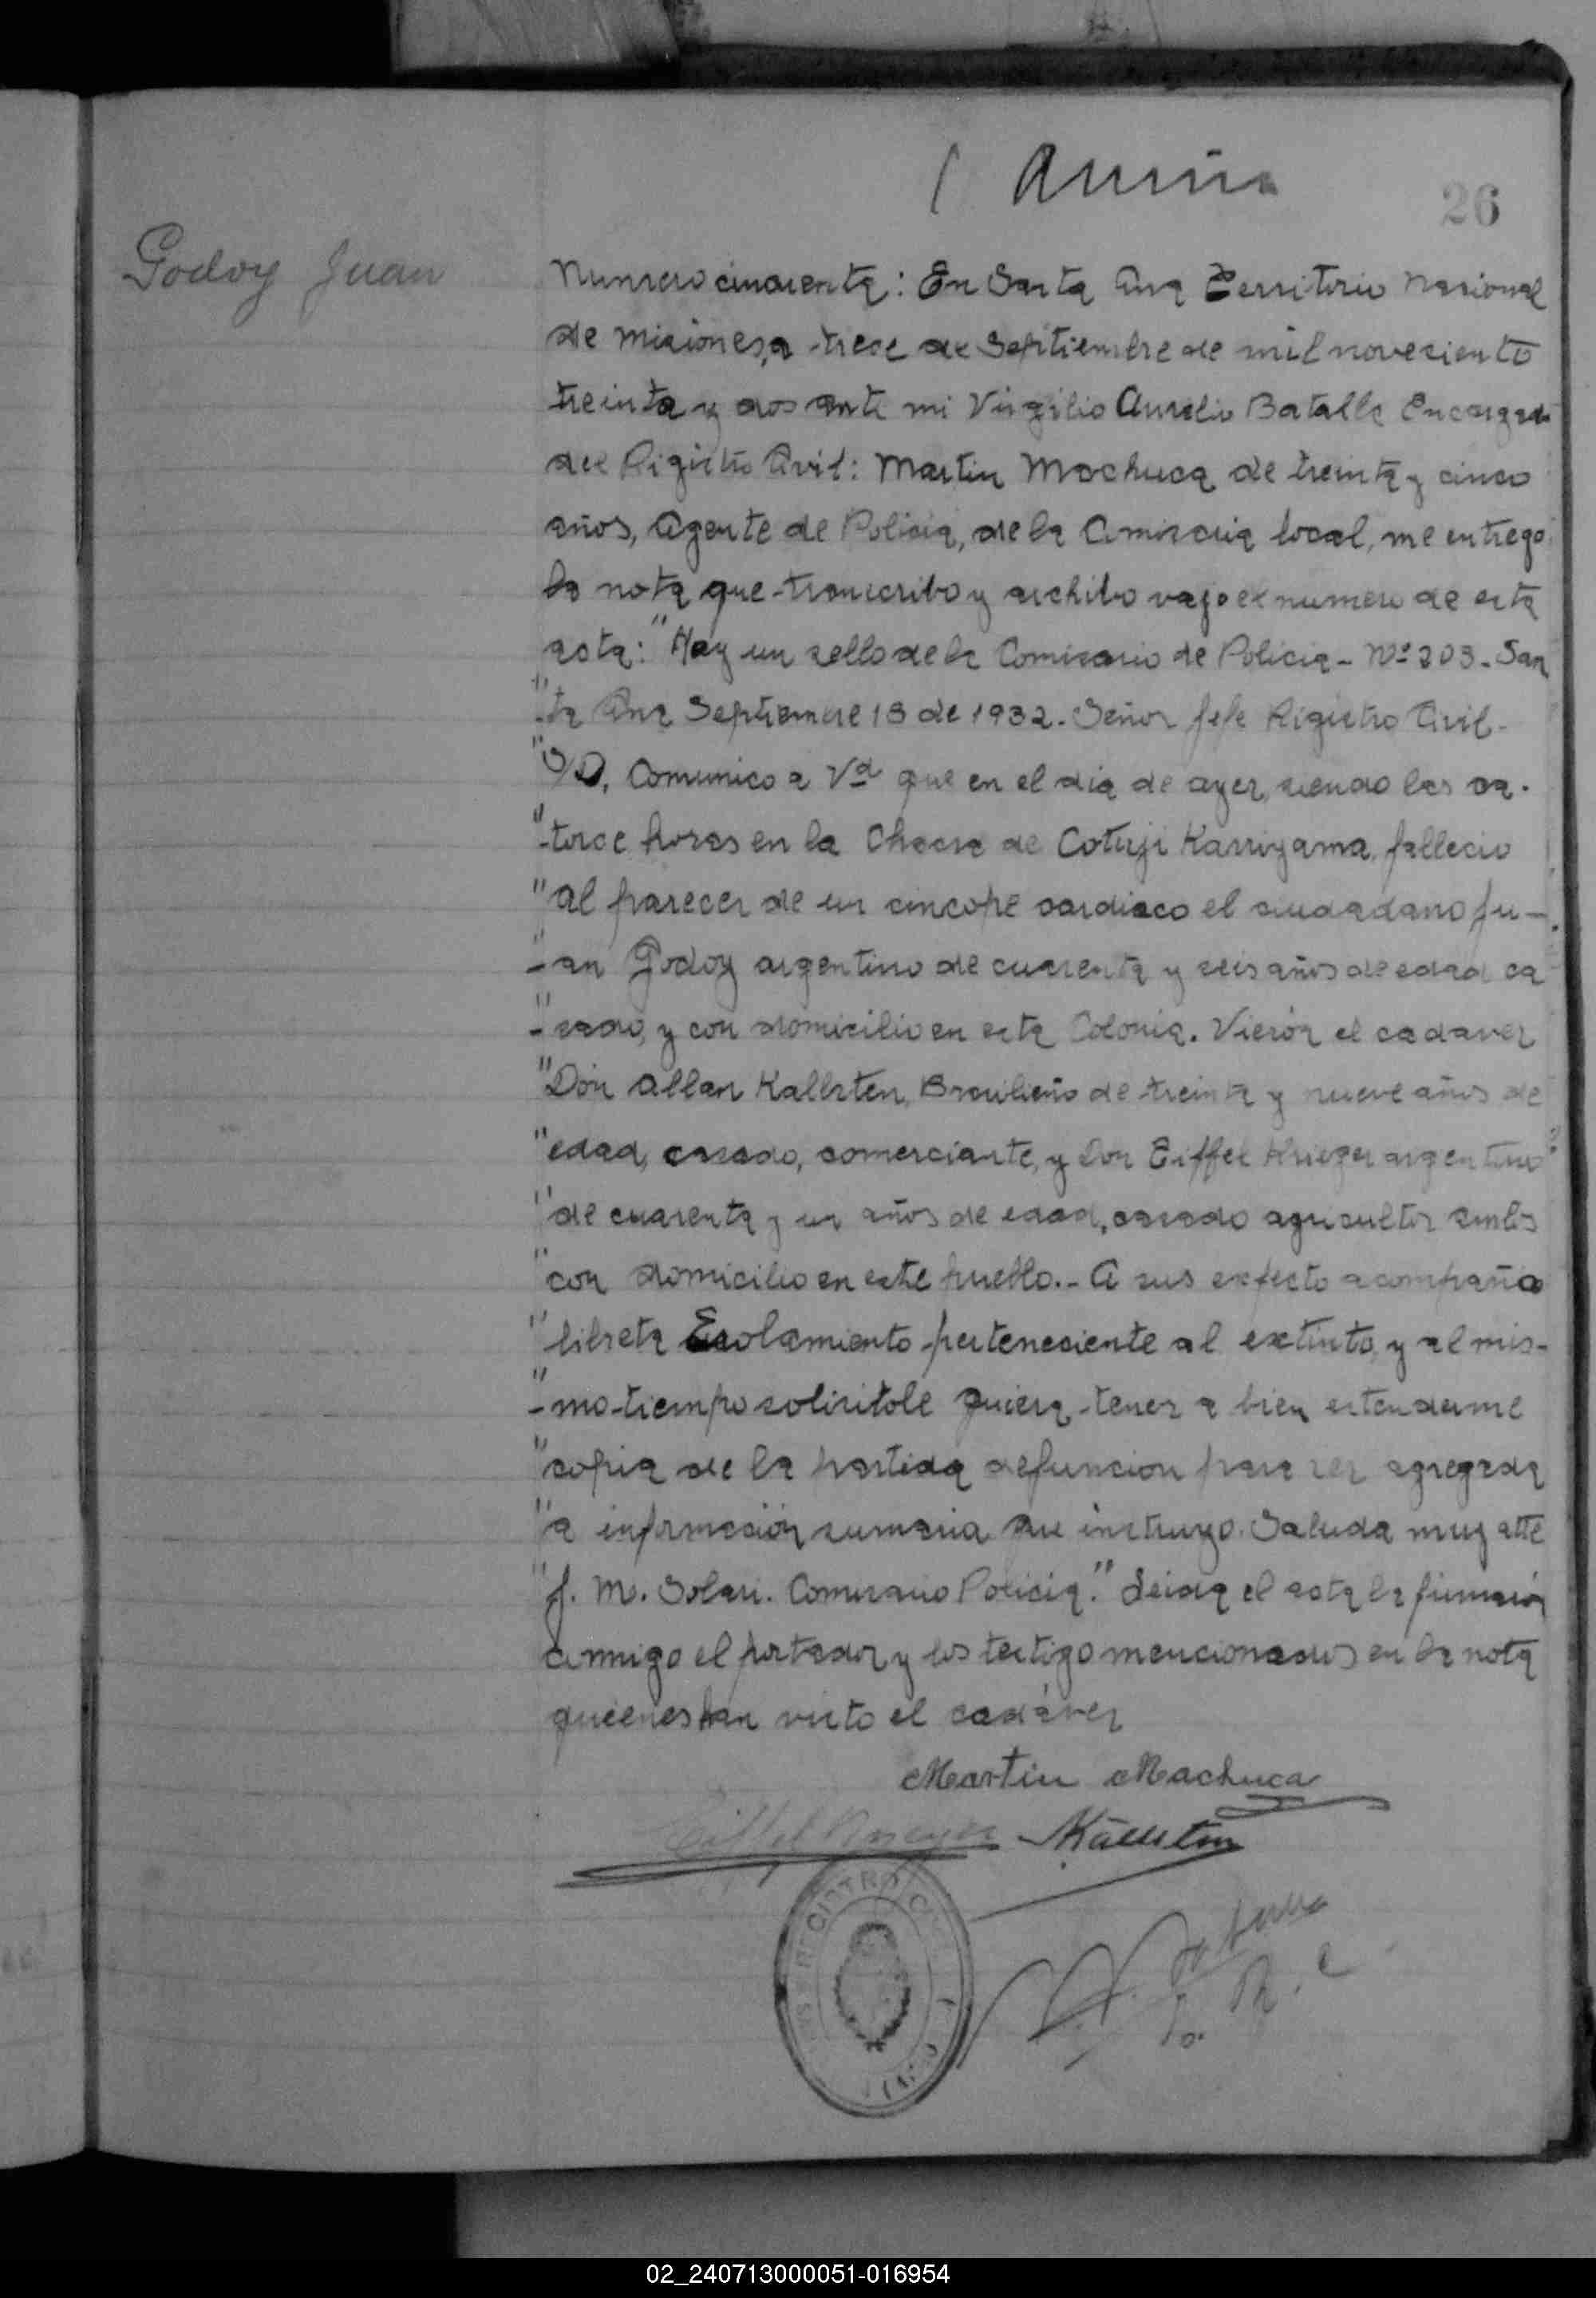 26
Godoy Juan
Numero cincuenta: En Santa Ana Territorio Nacional
de Misiones, a trece de Septiembre de mil noveciento
treinta y dos ante mi Virgilio Aurelio Batalla Encargado
del Rigistro Civil: Martin Machuca de treinta y cinco
años, Agente de Policia, de la Comisaria local, me entrego
la nota que transcribo y archibo vajo el numero de esta
acta: "Hay un sello de la Comisario de Policia - Nº 203 - San
"-ta Ana Septiembre 13 de 1932. Señor Jefe Rigistro Civil-
"S/D, Comunico a Vd que en el dia de ayer, siendo las ca-
"-torce horas en la Chacra de Cotuji Karriyama, fallecio
"al parecer de un cincope cardiaco el ciudadano Ju-
"-an Godoy argentino de cuarenta y seis años de edad ca
"-sado, y con domicilio en esta Colonia. Vierón el cadaver
"Don Allan Kallsten, Brasileño de treinta y nueve años de
"edad, casado, comerciante, y Don Eiffel Krieger argentino
"de cuarenta y un años de edad, casado agricultor ambos
"con domicilio en este pueblo.- A sus exfecto acompaño
"libreta Erolamiento perteneciente al extinto, y al mis-
"-mo tiempo solicitole quiera tener a bien estenderme
"copia de la partida defuncion para ser agregada
"a información sumaria que instruyo. Saluda muy atte
"J. M. Solari. Comisario Policia." Leida el acta la firmarón
conmigo el portador y los testigo mencionados en la nota
quienes han visto el cadáver
Martin Machuca
Eiffel Krieger Källsten
REGISTRO CIVIL
02_240713000051-016954